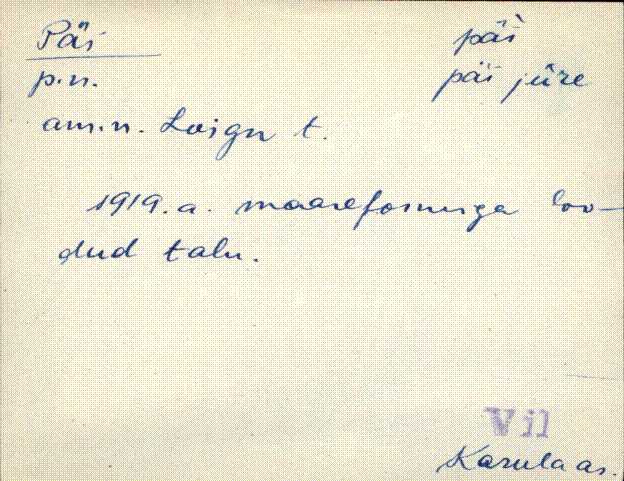 Päs
päš
p.n.
päš jüre
am.n. Loigu t.
1919.a. maareformiga loo-
dud talu.
Vil
Karula as.